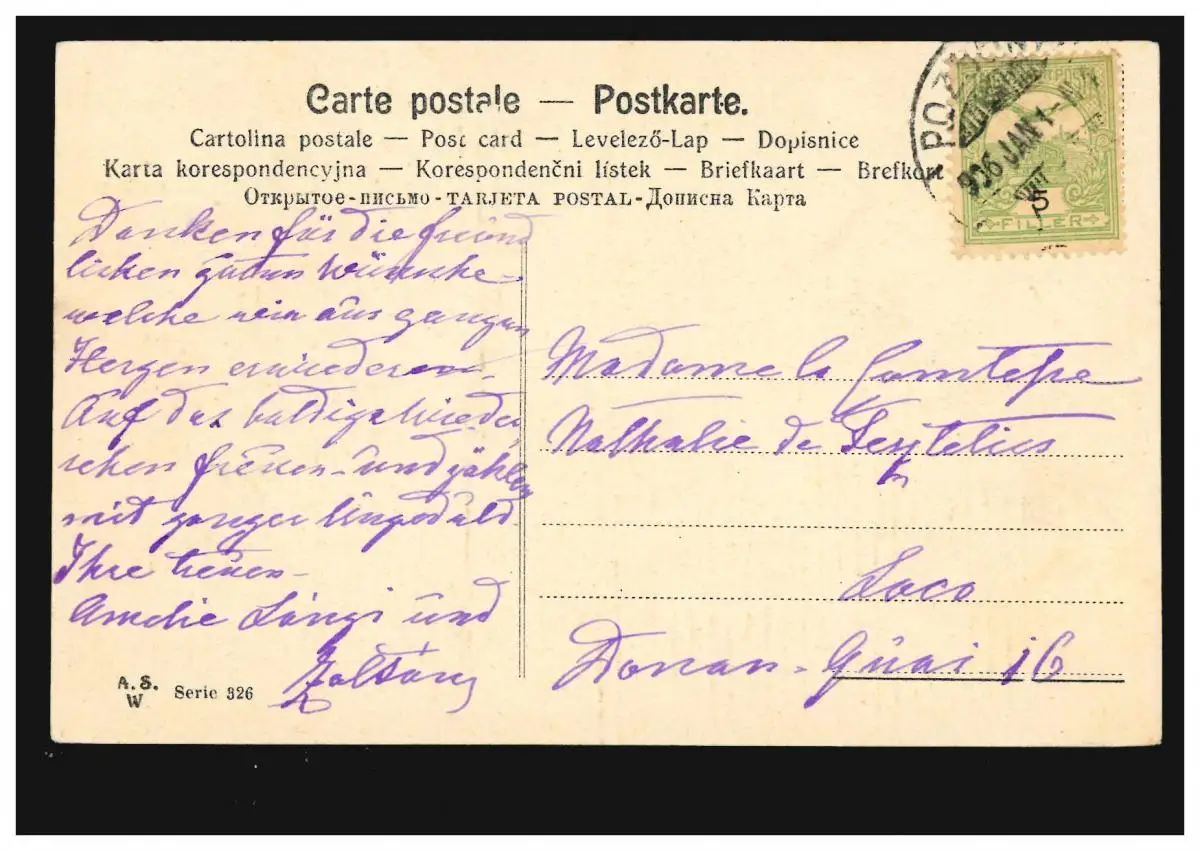 Carte postale — Postkarte.
Cartolina postale — Post card — Levelező-Lap — Dopisnice
Karta korespondencyjna — Korespondenčni lístek — Briefkaart — Brefkort
Открытое-письмо-TARJETA POSTAL-Дописна Карта
POZSONY
906 JAN 1
5
FILLER
Danken für die freund
lichen guten Wünsche
welche wir aus ganzem
Herzen erwiedern
Auf das baldige Wieder
sehen freuen und zählen
mit ganzer Ungeduld
Ihre treuen
Amelie Lángi und
Zoltán
Madame la Comtesse
Nathalie de
Loco
Donau-Quai 16
A. S.
W
Serie 326